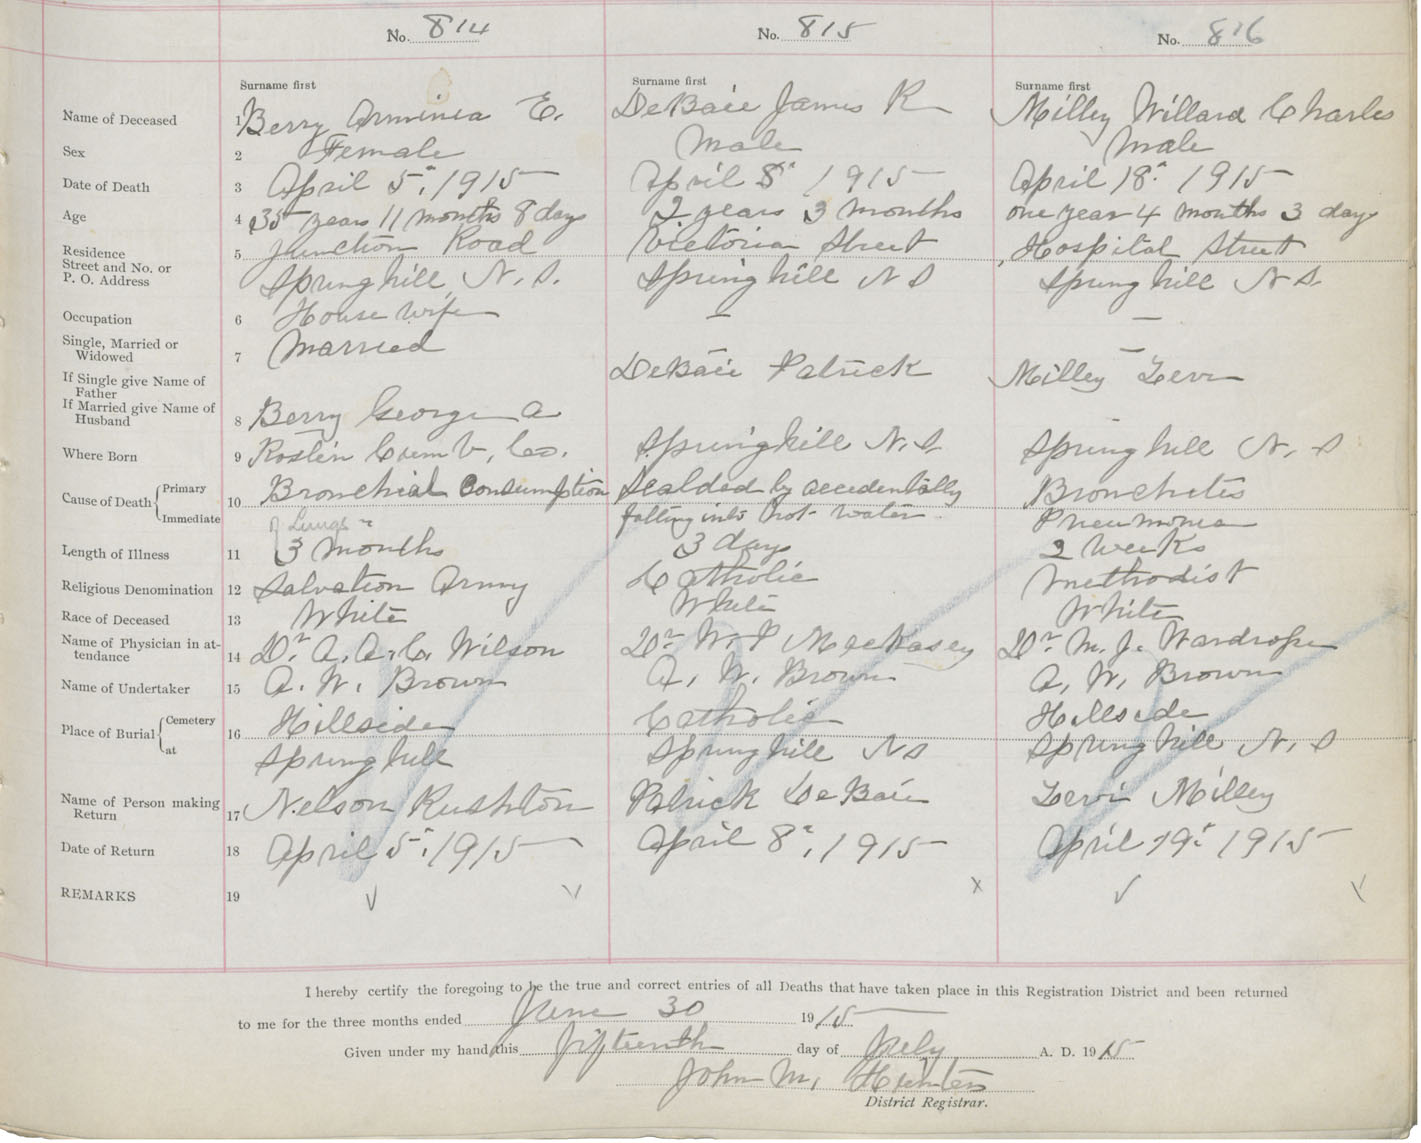 No. 814 No. 815 No. 816
Surname first Surname first Surname first
Name of Deceased 1 Berry Arminia E. DeBaie James R Milley Willard Charles
Sex 2 Female Male Male
Date of Death 3 April 5", 1915 April 8" 1915 April 18" 1915
Age 4 35 years 11 months 8 days 2 years 3 months one year 4 months 3 days
Residence 5 Junction Road Victoria Street Hospital Street
Street and No. or
P. O. Address Springhill, N. S. Springhill N S Springhill N S.
Occupation 6 House wife — —
Single, Married or
Widowed 7 Married — —
If Single give Name of
Father DeBaie Patrick Milley Levi
If Married give Name of
Husband 8 Berry George A
Where Born 9 Roslin Cumb, Co. Springhill N. S. Springhill N. S
Cause of Death { Primary 10 Bronchial Consumption Scalded by accedentally Bronchetis
Immediate of Lungs falling into hot water Pneumonia
Length of Illness 11 3 months 3 days 2 weeks
Religious Denomination 12 Salvation Army Catholic Methodist
Race of Deceased 13 White White White
Name of Physician in at-
tendance 14 Dr. A. A. C. Wilson Dr W. P Dr M. J. Wardrope
Name of Undertaker 15 A. W. Brown A. W. Brown A. W. Brown
Place of Burial { Cemetery 16 Hillside Catholic Hillside
at Springhill Springhill NS Springhill N. S
Name of Person making
Return 17 Nelson Rushton Patrick DeBaie Levi Milley
Date of Return 18 April 5", 1915 April 8", 1915 April 19" 1915
REMARKS 19
I hereby certify the foregoing to be the true and correct entries of all Deaths that have taken place in this Registration District and been returned
to me for the three months ended June 30 1915
Given under my hand, this fifteenth day of July A. D. 1915
John M. Hunter
District Registrar.